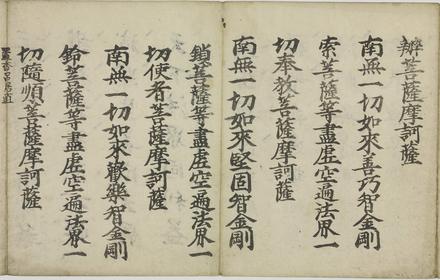 辦菩薩摩訶薩
南無一切如來善巧智金剛
索菩薩等盡虛空遍法界一
切奉教菩薩摩訶薩
南無一切如來堅固智金剛
鎖菩薩等盡虛空遍法界一
切使者菩薩摩訶薩
南無一切如來歡樂智金剛
鈴菩薩等盡虛空遍法界一
切隨順菩薩摩訶薩